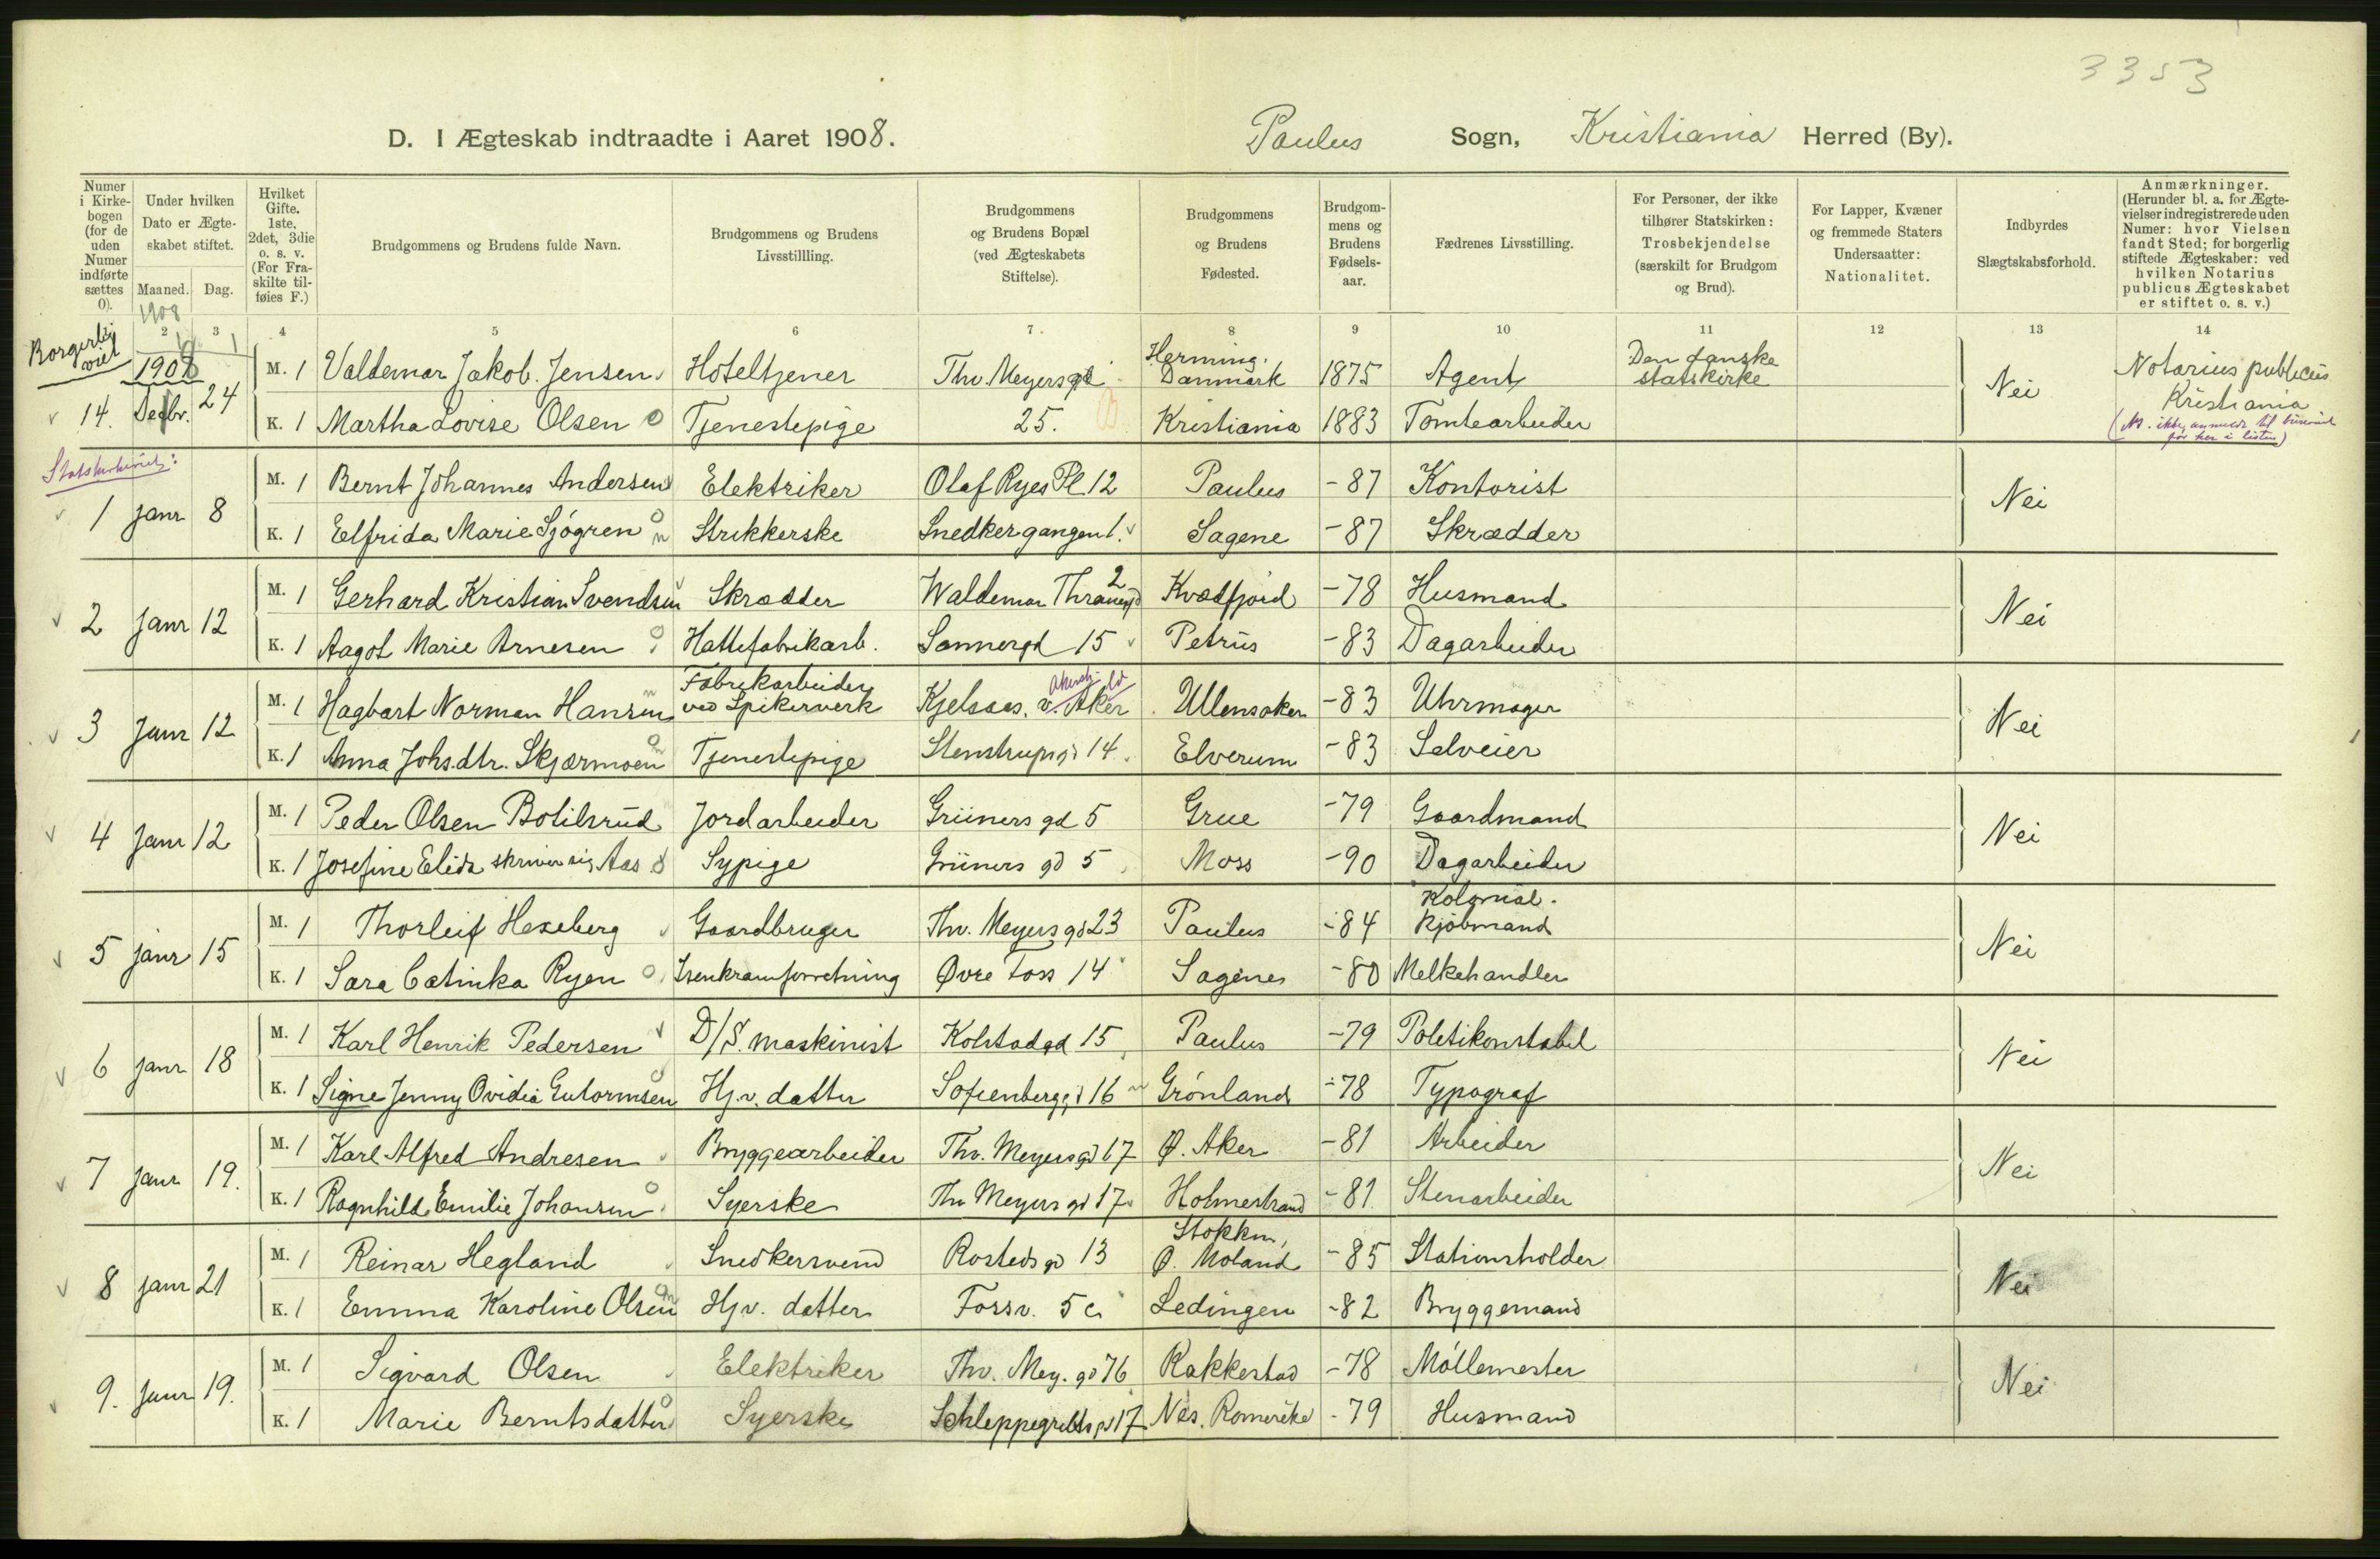 3353
D. I Ægteskab indtraadte i Aaret 1908. Paulus Sogn, Kristiania Herred (By).
Numer i Kirkebogen (for de uden Numer indførte sættes 0).
Under hvilken Dato er Ægteskabet stiftet.
Maaned. Dag.
Hvilket Gifte. 1ste, 2det, 3die o. s. v. (For Fraskilte tilføies F.)
Brudgommens og Brudens fulde Navn.
Brudgommens og Brudens Livsstillling.
Brudgommens og Brudens Bopæl (ved Ægteskabets Stiftelse).
Brudgommens og Brudens Fødested.
Brudgommens og Brudens Fødselsaar.
Fædrenes Livsstilling.
For Personer, der ikke tilhører Statskirken: Trosbekjendelse (særskilt for Brudgom og Brud).
For Lapper, Kvæner og fremmede Staters Undersaatter: Nationalitet.
Indbyrdes Slægtskabsforhold.
Anmærkninger. (Herunder bl. a. for Ægtevielser indregistrerede uden Numer: hvor Vielsen fandt Sted; for borgerlig stiftede Ægteskaber: ved hvilken Notarius publicus Ægteskabet er stiftet o. s. v.)
1908
2 3 4 5 6 7. 8 9 10 11 12 13 14
Borgerlig viet
1908
M. 1 Valdemar Jakob Jensen Hoteltjener Thv. Meyers gd Herning. Danmark 1875 Agent Den danske statskirke Nei Notarius publicus Kristiania
14. Decbr. 24 K. 1 Martha Lovise Olsen Tjenestepige 25. Kristiania 1883 Tomtearbeider
(NB. ikke anmeldt til før her i listen)
M. 1 Bernt Johannes Andersen Elektriker Olaf Ryes Pl 12 Paulus -87 Kontorist Nei
1 janr 8 K. 1 Elfrida Marie Sjögren Strikkerske Snedkergangen 1. Sagene -87 Skrædder
M. 1 Gerhard Kristian Svendsen Skrædder Waldemar Thranesgd 2 Kvædfjord -78 Husmand Nei
2 Janr 12 K. 1 Aagot Marie Arnesen Hattefabrikarb. Sannergd 15 Petrus -83 Dagarbeider
M. 1 Hagbart Norman Hansen Fabrikarbeider ved Spikerverk Kjelsaas, v. Aker Ullensaker -83 Uhrmager Nei
3 Janr 12 K. 1 Anna Johs.dtr. Skjærmoen Tjenestepige Stenstrupsgd 14. Elverum -83 Selveier
M. 1 Peder Olsen Botilsrud Jordarbeider Grüners gd 5 Grue -79 Gaardmand Nei
4 Janr 12 K. 1 Josefine Elida skriver sig Aas Sypige Grüners gd 5 Moss -90 Dagarbeider
M. 1 Thorleif Hexeberg Gaardbruger Thv. Meyers gd 23 Paulus -84 Kolonial-kjøbmand Nei
5 janr 15 K. 1 Sara Catinka Ryen Isenkramforretning Øvre Foss 14 Sagene -80 Melkehandler
M. 1 Karl Henrik Pedersen D/S. maskinist Kolstadgd 15 Paulus -79 Politikonstabel Nei
6 janr 18 K. 1 Signe Jenny Ovidia Gutormsen Hj.v. datter Sofienberggd 16 Grönland -78 Typograf
M. 1 Karl Alfred Andresen Bryggearbeider Thv. Meyers gd 67 Ø. Aker -81 Arbeider Nei
7 janr 19. K. 1 Ragnhild Emilie Johansen Syerske Thv Meyers gd 17 Holmestrand -81 Stenarbeider
M. 1 Reinar Hegland Snedkersvend Rosteds gd 13 Stokken, Ø. Moland -85 Stationsholder Nei
8 janr 21 K. 1 Emma Karoline Olsen Hj.v. datter Fossv. 5 c Lødingen -82 Bryggemand
M. 1 Sigvard Olsen Elektriker Thv. Mey. gd 76 Rakkestad -78 Møllemester Nei
9. Janr 19. K. 1 Marie Berntsdatter Syerske Schleppegrellsgd 17 Nes, Romerike -79 Husmand